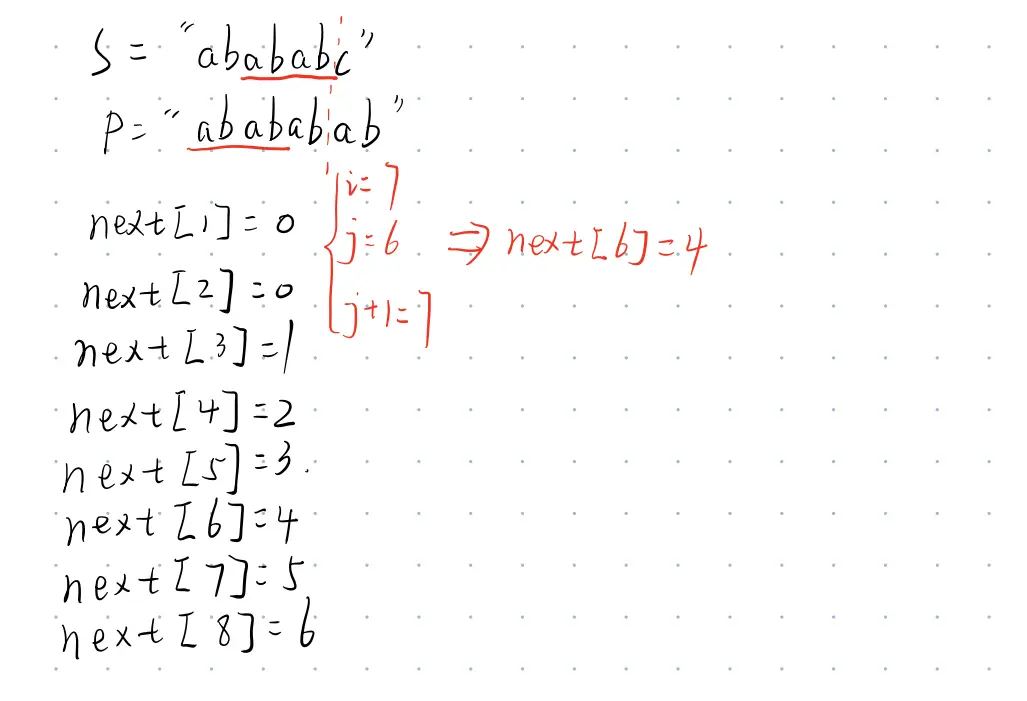 S = "abababc"
P = "abababab"
next[1]=0
next[2]=0
next[3]=1
next[4]=2
next[5]=3.
next[6]=4
next[7]=5
next[8]=6
i=7
j=6 ⇒ next[6]=4
j+1=7